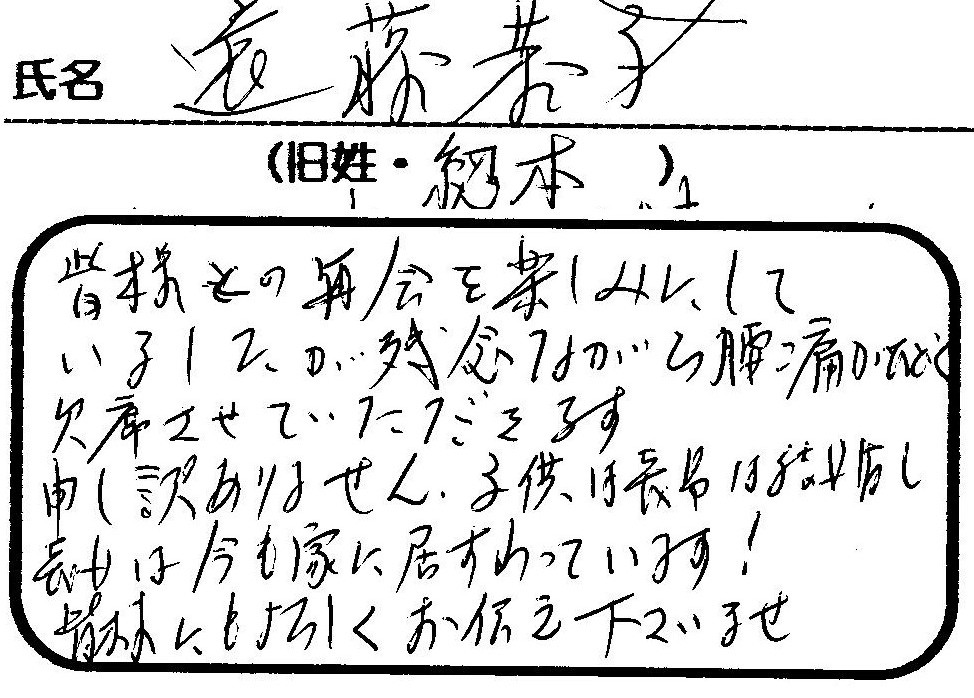 氏名 遠藤恭子
(旧姓・ 本 )
皆様との再会を楽しみにして
いましたが残念ながら腰痛がひどく
欠席させていただきます
申し訳ありません. 子供は長男は結婚し
長女は今も家に居すわっています!
皆様にもよろしくお伝え下さいませ